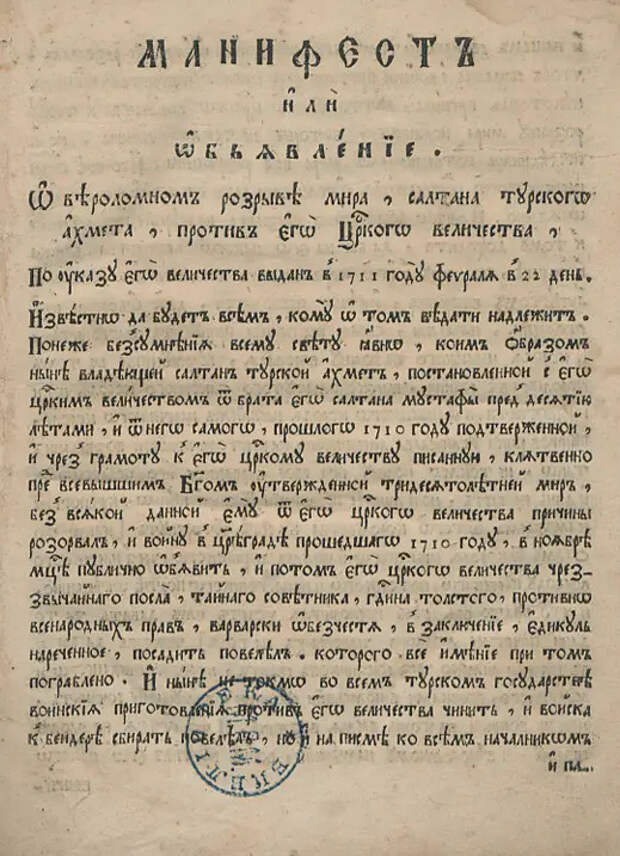 МАНИФЕСТЪ
и҆лѝ
ѡ҆бьѧвле́нїе.
Ѡ҆ вѣроломномъ розрывѣ мира, салтана тꙋрскогѡ
а҆хмета, противъ є҆гѡ̀ Цр҃когѡ величества,
По ᲂу҆казꙋ є҆гѡ̀ величества выдан̾ в̾ 1711 годꙋ феѵралѧ в̾ 22 день.
И҆звѣстнѡ да бꙋдетъ всѣмъ, комꙋ ѡ҆ том̾ вѣдати надлежит̾.
Понеже без̾сꙋмнѣнїѧ всемꙋ свѣтꙋ ꙗ҆внѡ, коим̾ ѡ҆бразом̾
нынѣ владѣющей салтан̾ тꙋрской а҆хмет̾, постановленной с̾ є҆гѡ̀
цр҃ким̾ величествомъ ѿ брата є҆гѡ̀ салтана мꙋстафы̀ пред̾ десѧтїю
лѣтами, и҆ ѿ негѡ самогѡ, прошлогѡ 1710 годꙋ подтверженной,
и҆ чрез̾ грамотꙋ к̾ є҆гѡ̀ цр҃комꙋ величествꙋ писаннꙋю, клѧтвенно
пре всевышшим̾ Бг҃ом̾ ᲂу҆твержденной тридесѧтолѣтней мир̾,
без̾ всѧкой данной є҆мꙋ̀ ѿ є҆гѡ̀ цр҃когѡ величества причины
розорвал̾, и҆ войнꙋ в̾ цр҃ѣградѣ прошедшагѡ 1710 годꙋ, в̾ ноѧбрѣ
мц҃ѣ пꙋблично ѡ҆б̾ѧвить, и҆ потом̾ є҆гѡ̀ цр҃когѡ величества чрез-
звычайнаго посла̀, тайнаго совѣтника, гд҃ина толстого, противнѡ
всенародныхъ прав̾, варварски ѡ҆безчестѧ, в̾ заключение, є҆дикꙋль
нареченное, посадить повелѣл̾. которого всѐ и҆мѣнїе при том̾
пограблено. И҆ нынѣ не токмѡ во всем̾ тꙋрском̾ государствѣ
воинскїѧ приготовленїѧ против̾ є҆гѡ̀ величества чинить, и҆ войска
к̾ бендерѣ сбирать повелѣл̾, но и҆ на писмѣ ко всѣм̾ началником̾